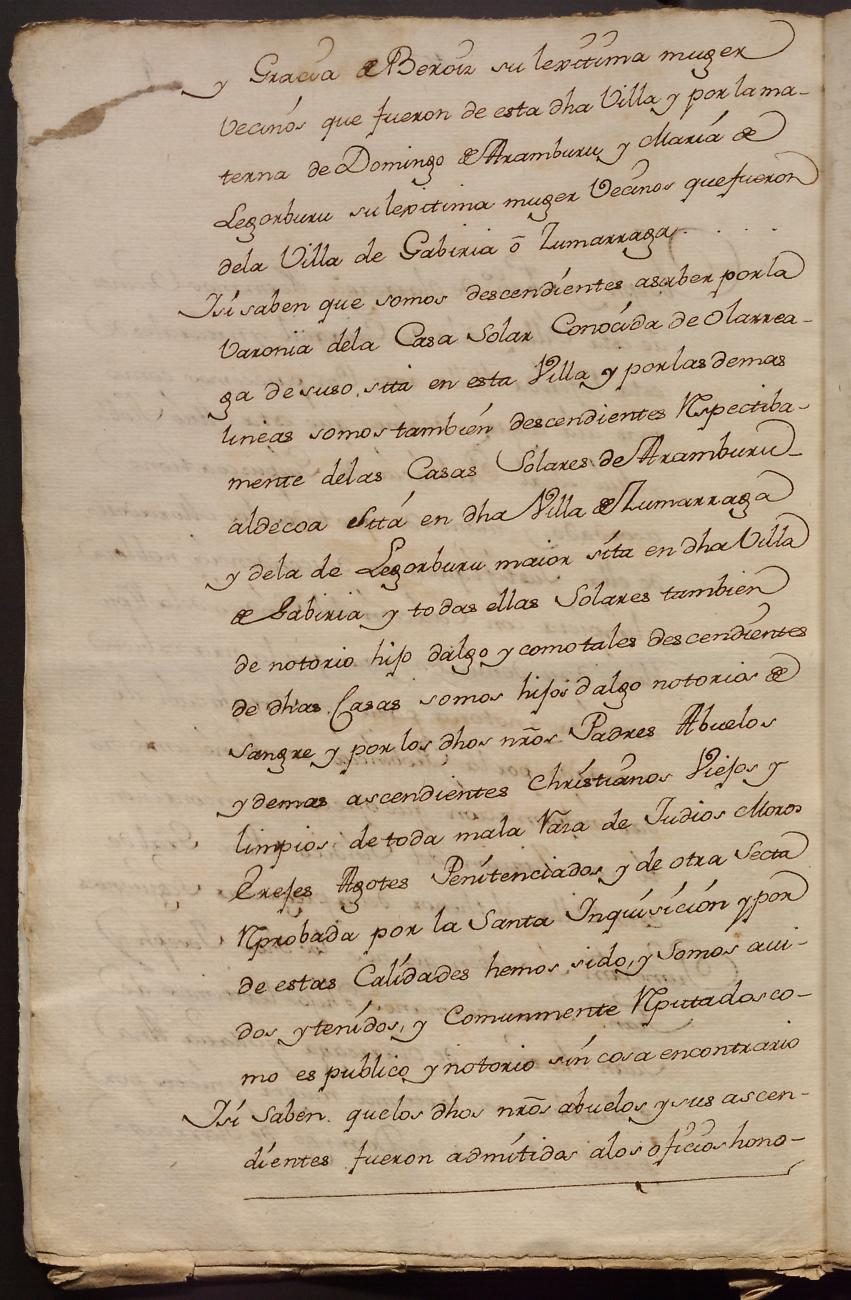 y Gracia de Beroiz su lexitima muger
Vecinos que fueron de esta dha Villa y por la ma-
terna de Domingo de Aramburu y Maria de
Legorburu su lexitima muger Vecinos que fueron
dela Villa de Gabiria ō Zumarraga
Isi saben que somos descendientes asaber por la
Varonia dela Casa Solar Conocida de Olarrea-
ga de suso, sita en esta Villa y por las demas
lineas somos tambien descendientes Rspectiba-
mente delas Casas Solares de Aramburu
aldecoa sita en dha Villa de Zumarraga
y dela de Legorburu maior sita en dha Villa
de Gabiria y todas ellas Solares tambien
de notorio hijo dalgo y como tales descendientes
de dhas Casas somos hijos dalgo notorios de
sangre y por los dhos nrõs Padres Abuelos
y demas ascendientes Christianos Viejos y
limpios de toda mala Raza de Judios Moros
Erejes Agotes Penitenciados y de otra Secta
Rprobada por la Santa Inquisicion y por
de estas Calidades hemos sido, y Somos aui-
dos y tenidos, y Comunmente Rputados co-
mo es publico y notorio sin cosa encontrario
Isi Saben que los dhos nrõs abuelos y sus ascen-
dientes fueron admitidos alos oficios hono-